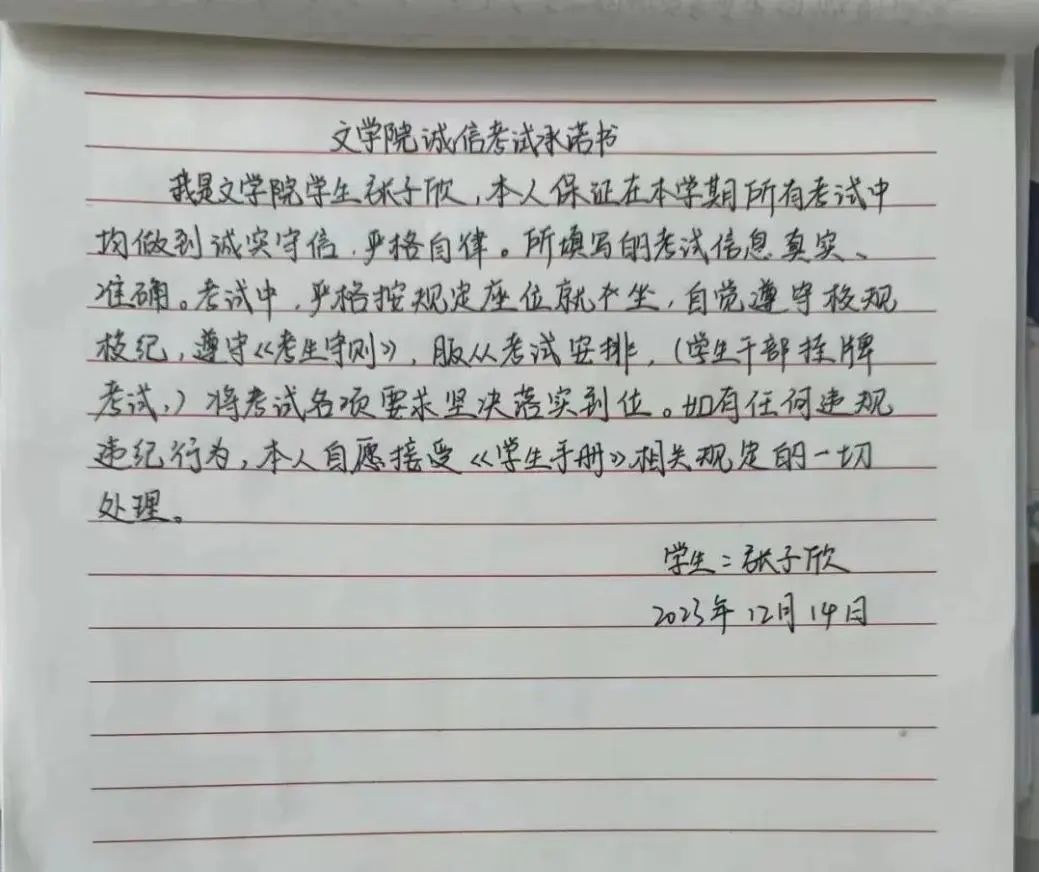 文学院诚信考试承诺书
我是文学院学生张子欣,本人保证在本学期所有考试中
均做到诚实守信,严格自律。所填写的考试信息真实、
准确。考试中,严格按规定座位就坐,自觉遵守校规
校纪,遵守《考生守则》,服从考试安排,(学生干部挂牌
考试,)将考试各项要求坚决落实到位。如有任何违规
违纪行为,本人自愿接受《学生手册》相关规定的一切
处理。
学生:张子欣
2023年12月14日